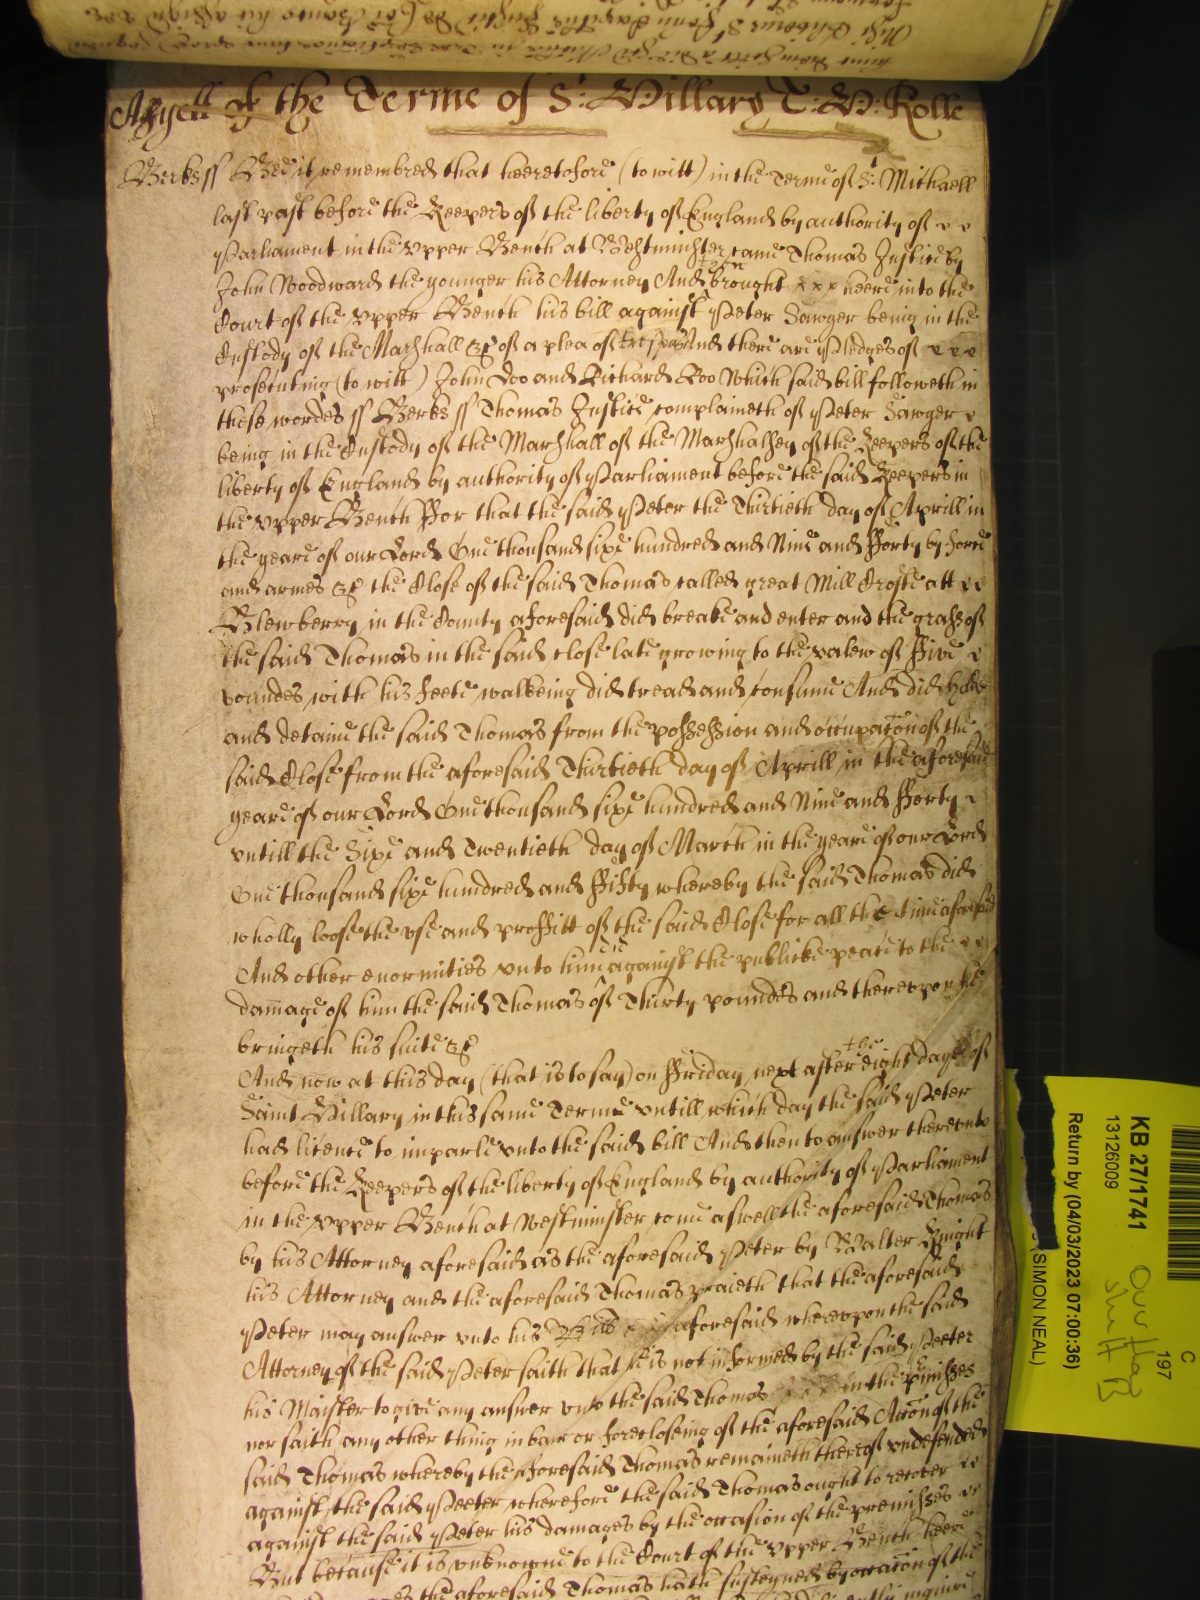 of the Terme of St. Hillary T: W: Rolle
Berks ss Bee it remembred that heeretofore (to witt) in the Terme of St. Michaell
last past before the Keepers of the liberty of England by authority of
Parliament in the vpper Bench at Westminster came Thomas Justice by
John Woodward the younger his Attorney And brought heere into the then
Court of the vpper Bench his bill against Peter Sawger being in the
Custody of the Marshall &c of a plea of trespas And there are Pledges of
prosecuting (to witt) John Doo and Richard Roo Which said bill followeth in
these wordes ss Berks ss Thomas Justice complaineth of Peter Sawger
being in the Custody of the Marshall of the Marshalsey of the Keepers of the
liberty of England by authority of Parliament before the said Keepers in
the vpper Bench ffor that the said Peter the Thirtieth day of Aprill in
the yeare of our Lord One thousand sixe hundred and Nine and fforty by force
and armes &c the Close of the said Thomas called great Mill Crofte att
Blewberry in the County aforesaid did breake and enter and the grasse of
the said Thomas in the said close late growing to the valew of ffive
poundes with his feete walkeing did tread and consume And did hold
and detaine the said Thomas from the possession and occupacon of the
said Close from the aforesaid Thirtieth day of Aprill in the aforesaid
yeare of our Lord One thousand sixe hundred and Nine and fforty
vntill the Sixe and Twentieth day of March in the yeare of our Lord
One thousand sixe hundred and ffifty whereby the said Thomas did
wholly loose the vse and proffitt of the said Close for all the time aforesaid
And other enormities vnto him did against the publicke peace to the
damage of him the said Thomas of Thirty poundes and therevpon he
bringeth his suite &c
And now at this day (that is to say) on ffriday next after the eight dayes of
Saint Hillary in this same Terme vntill which day the said Peter
had licence to imparle vnto the said bill And then to answer therevnto
before the Keepers of the liberty of England by authority of Parliament
in the vpper Bench at Westminster come aswell the aforesaid Thomas
by his Attorney aforesaid as the aforesaid Peter by Walter Knight
his Attorney and the aforesaid Thomas praieth that the aforesaid
Peter may answer vnto his aforesaid wherevpon the said
Attorney of the said Peter saith that he is not informed by the said Peeter
his Maister to give any answer vnto the said Thomas in the premisses
nor saith any other thing in barr or foreclosing of the aforesaid Accon of the
said Thomas whereby the aforesaid Thomas remaineth thereof vndefended
against the said Peeter wherefore the said Thomas ought to recover
against the said Peter his damages by the occasion of the premisses
But because it is vnknowne to the Court of the vpper Bench heere
the aforesaid Thomas hath susteyned by occacon of the
inquire
KB 27/1741
13126009
Return by (04/03/2023 07:00:36)
(SIMON NEAL)
C
197